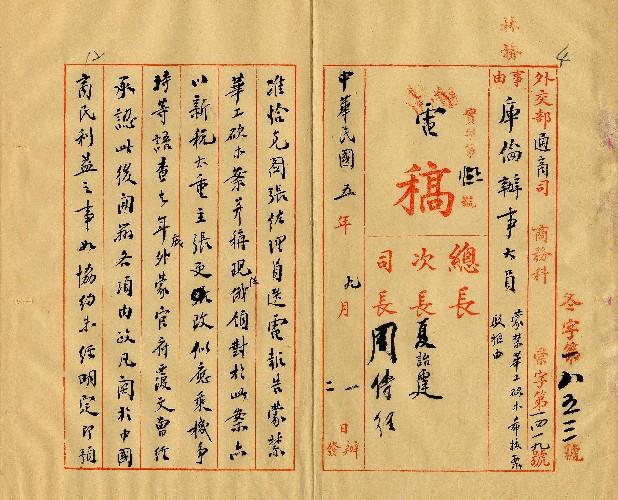 林務
4
外交部通商司 商務科
第一四一九號
字第一八五三號
事由
庫倫辦事大員
蒙禁華工砍木希核衆
電
稿
號
總長
次長夏詒霆
司長周傳經
中華民國五年 九月 二一日 辦發
12
准恰克圖張佐理員迭電報告蒙禁
華工砍木案并稱現俄領對於此案亦
以新稅太重主張更改似應乘機爭
持等語查上年外蒙官府覆文曾經
承認此後開辦各項內政凡關於中國
商民利益之事如協約未經明定即預